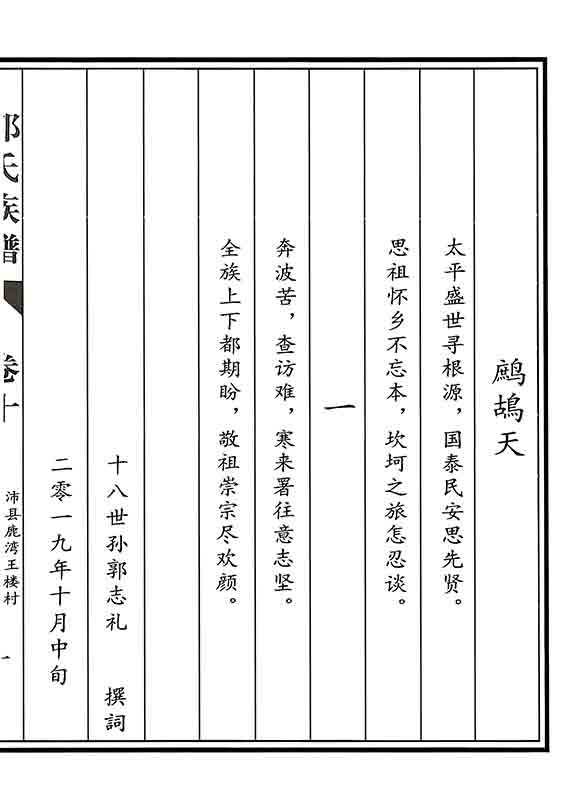 鹧鸪天
太平盛世寻根源，国泰民安思先贤。
思祖怀乡不忘本，坎坷之旅怎忍谈。
一
奔波苦，查访难，寒来署往意志坚。
全族上下都期盼，敬祖崇宗尽欢颜。
十八世孙郭志礼　撰詞
二零一九年十月中旬
氏族谱
卷十
沛县鹿湾王楼村
一